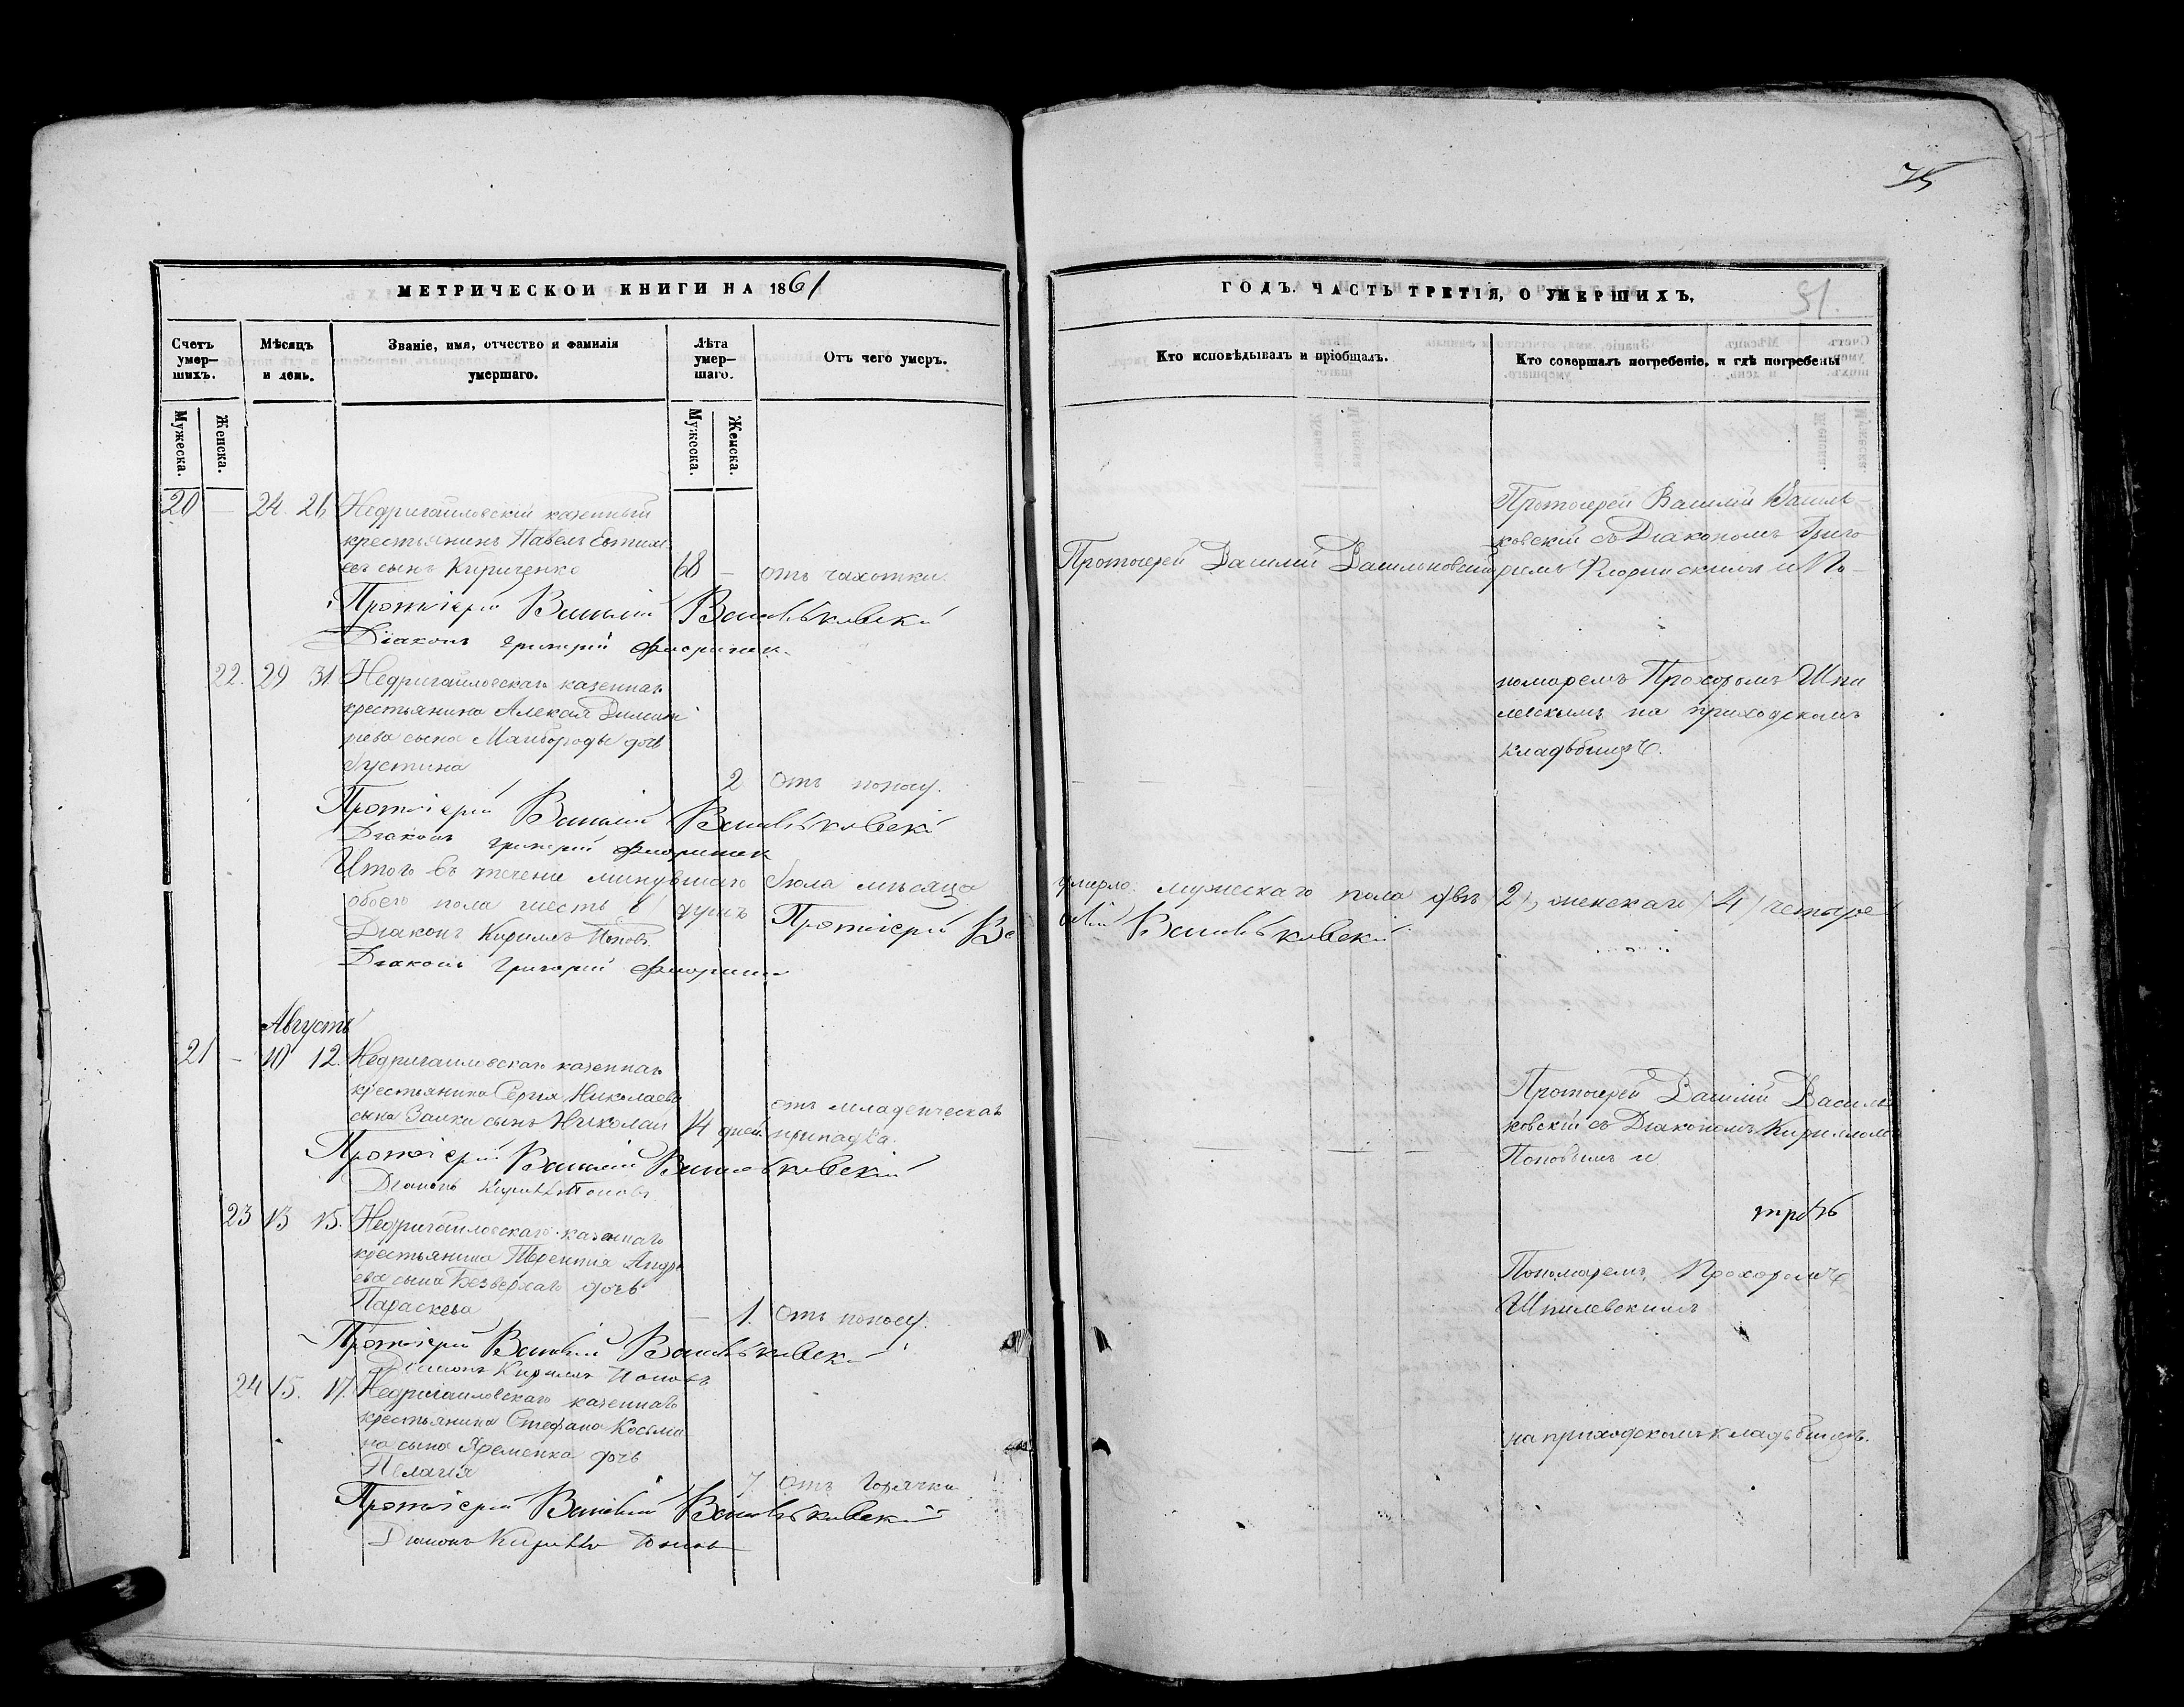 75
МЕТРИЧЕСКОЙ КНИГИ НА 1861
ГОДЪ. ЧАСТЬ ТРЕТІЯ, О УМЕРШИХЪ.
51.
Счетъ умер-шихъ.
Мѣсяцъ и день.
Званіе, имя, отчество и фамилія умершаго.
Лѣта умер-шаго.
Отъ чего умеръ.
Кто исповѣдывалъ и пріобщалъ.
Кто совершалъ погребеніе, и гдѣ погребены
Мужеска.
Женска.
Мужеска.
Женска.
20 — 24. 26 Недригайловскій казенный
крестьянинъ Павелъ Евтиміевъ
сынъ Кириченко 68 — отъ чахотки.
Протоіерей Василій Васильковскій
Діаконъ Григорій Флоринск
Протоіерей Василій Васильковскій
Протоіерей Василій Василь-
ковскій съ Діакономъ Григо
ріемъ Флоринскимъ и По-
22. 29 31. Недригайловскаго казеннаго
крестьянина Алексія Димит
ріева сына Майбороды дочь
Іустина 2 отъ поносу.
Протоіерей Василій Васильковскій
Діаконъ Григорій Флоринск
номаремъ Прохоромъ Шпи
левскимъ на приходскомъ
кладбищѣ.
Итого въ теченіе минувшаго Іюла мѣсяца умерло: мужескаго пола двѣ 2, женскаго 4 четыре
обоего пола шесть 6 душъ Протоіерей Василій Васильковскій
Діаконъ Кириллъ Поповъ
Діаконъ Григорій Флоринск
Августъ
21 — 10 12. Недригайловскаго казеннаго
крестьянина Сергія Николаева
сына Заики сынъ Николай 14 дней отъ младенческаго
припадка.
Протоіерей Василій Васильковскій
Діаконъ Кириллъ Поповъ
Протоіерей Василій Василь
ковскій съ Діакономъ Кирилломъ
Поповымъ и
23 13 15. Недригайловскаго казеннаго
крестьянина Терентія Андре
ева сына Безверхаго дочь
Параскева — 1. отъ поносу.
Протоіерей Василій Васильковскій
Діаконъ Кириллъ Поповъ
Пономаремъ Прохоромъ
Шпилевскимъ
24 15. 17. Недригайловскаго казеннаго
крестьянина Стефана Косьми
на сына Яременка дочь
Пелагія 7. отъ горячки
Протоіерей Василій Васильковскій
Діаконъ Кириллъ Поповъ
на приходскомъ кладьбищѣ.